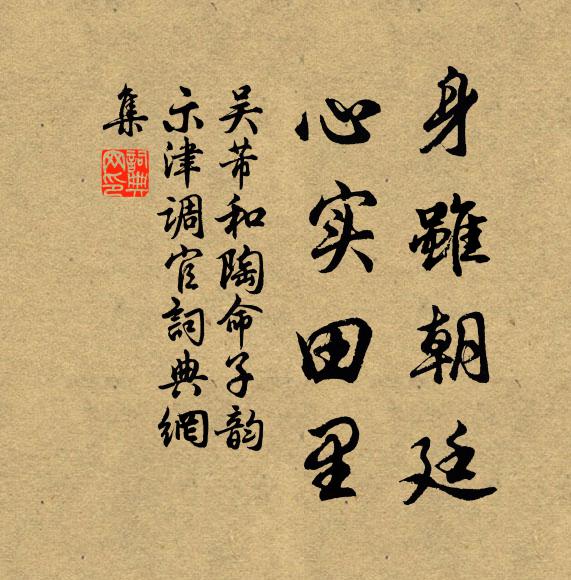 身雖朝廷
心实田里
吴芾和陶命子韵
示津调官詞典網
集
詞典
网印